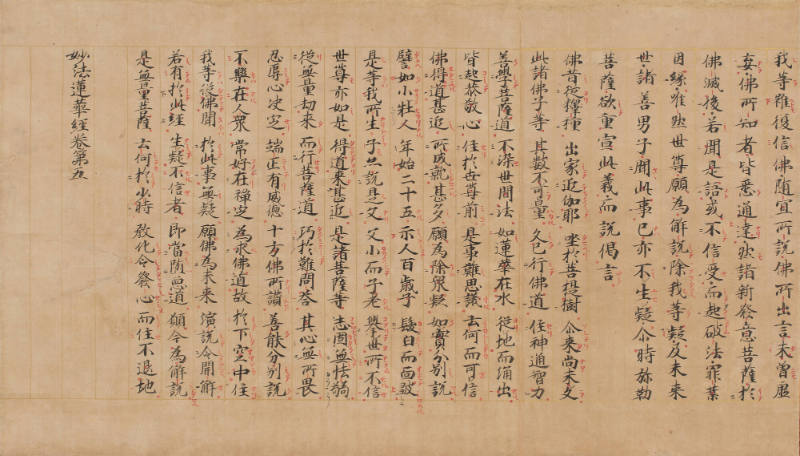 我等雖復信佛隨宜所說佛所出言未曾虛
妄佛所知者皆悉通達然諸新發意菩薩於
佛滅後若聞是語或不信受而起破法罪業
因緣唯然世尊願為解說除我等疑及未來
世諸善男子聞此事已亦不生疑尒時弥勒
菩薩欲重宣此義而說偈言
佛昔從釋種 出家近伽耶 坐於菩提樹 尒來尚未久
此諸佛子等 其數不可量 久已行佛道 住神通智力
善學菩薩道 不染世間法 如蓮華在水 從地而涌出
皆起恭敬心 住於世尊前 是事難思議 云何而可信
佛得道甚近 所成就甚多 願為除眾疑 如實分別說
譬如少壯人 年始二十五 示人百歲子 髮白而面皺
是等我所生 子亦說是父 父少而子老 舉世所不信
世尊亦如是 得道來甚近 是諸菩薩等 志固無怯弱
從無量劫來 而行菩薩道 巧於難問答 其心無所畏
忍辱心決定 端正有威德 十方佛所讚 善能分別說
不樂在人眾 常好在禪定 為求佛道故 於下空中住
我等從佛聞 於此事無疑 願佛為未來 演說令開解
若有於此經 生疑不信者 即當墮惡道 願今為解說
是無量菩薩 云何於少時 教化令發心 而住不退地
妙法蓮華經卷第五